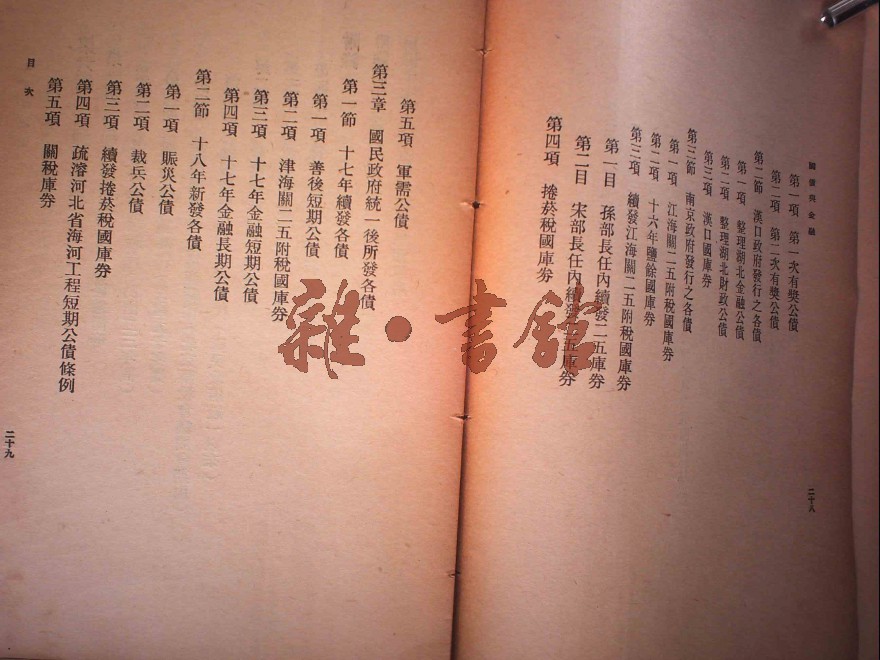 國債與金融
第一項 第一次有獎公債
第二項 第二次有獎公債
第二節 漢口政府發行之各債
第一項 整理湖北金融公債
第二項 整理湖北財政公債
第三項 漢口國庫券
第三節 南京政府發行之各債
第一項 江海關二五附稅國庫券
第二項 十六年鹽餘國庫券
第三項 續發江海關二五附稅國庫券
第一目 孫部長任內續發二五庫券
第二目 宋部長任內續發二五庫券
第四項 捲菸稅國庫券
二十八
第五項 軍需公債
第三章 國民政府統一後所發各債
第一節 十七年續發各債
第一項 善後短期公債
第二項 津海關二五附稅國庫券
第三項 十七年金融短期公債
第四項 十七年金融長期公債
第二節 十八年新發各債
第一項 賑災公債
第二項 裁兵公債
第三項 續發捲菸稅國庫券
第四項 疏濬河北省海河工程短期公債條例
第五項 關稅庫券
目次
二十九
雜·書館